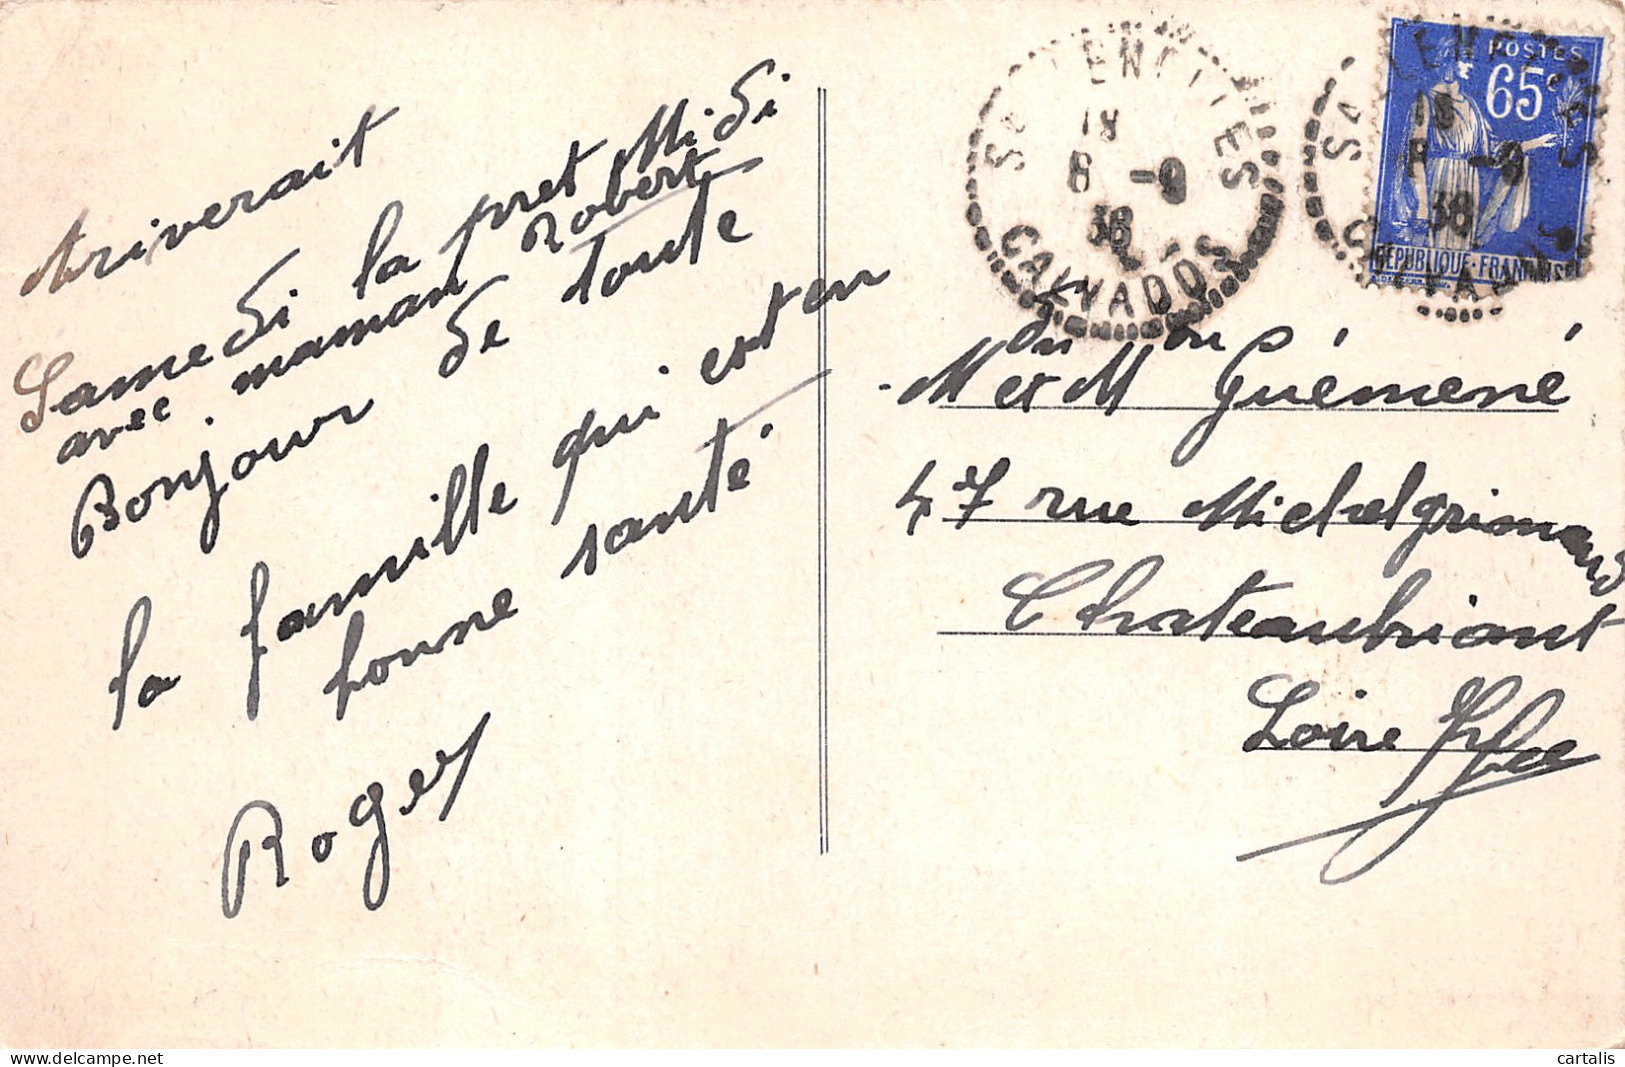 Ariverait
Samedi la pret Midi
avec maman Robert
Bonjour de toute
la famille qui est en
bonne santé
Roger
CALVADOS
18
8 -9
38
POSTES
65c
RÉPUBLIQUE FRANÇAISE
18
8 -9
38
M et M Guémené
47 rue Michelgrimaud
Chateaubriant
Loire Infre
cartalis